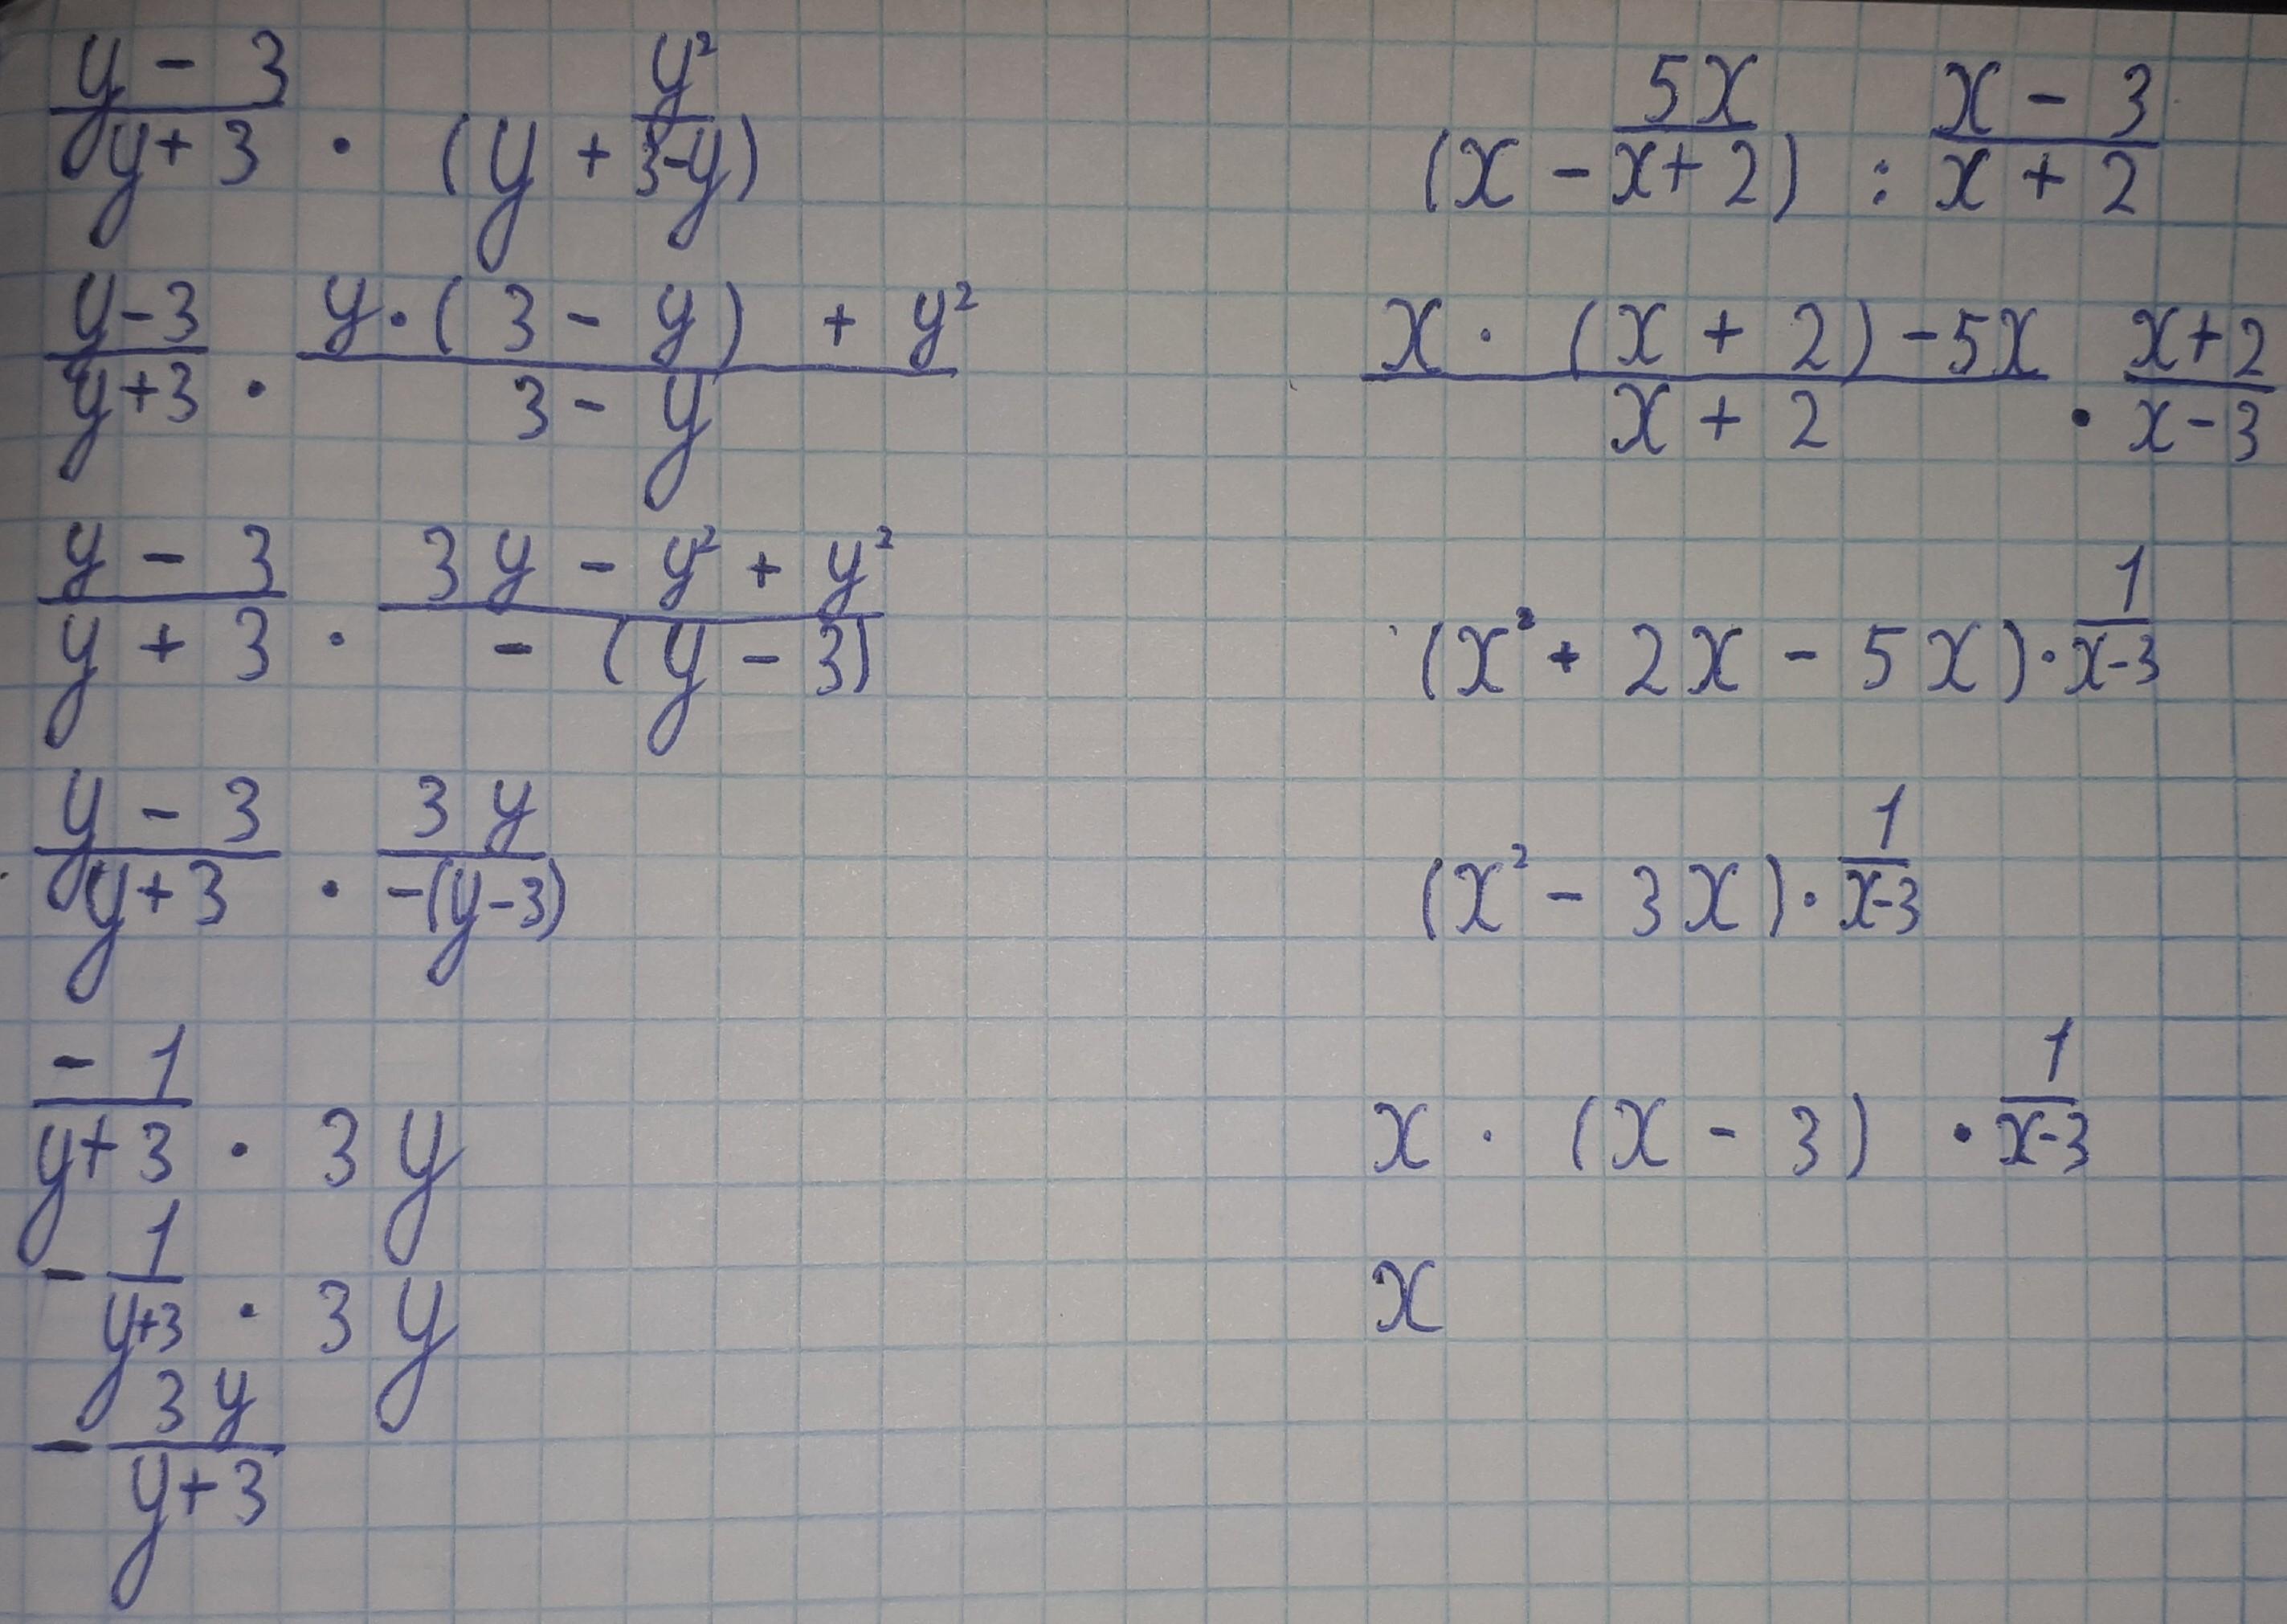 (y - 3)/(y + 3) · (y + y²/(3-y))
(y-3)/(y+3) · (y·(3 - y) + y²)/(3 - y)
(y - 3)/(y + 3) · (3y - y² + y²)/(-(y - 3))
(y - 3)/(y+3) · 3y/(-(y-3))
(-1)/(y+3) · 3y
- 1/(y+3) · 3y
- 3y/(y+3)
(x - 5x/(x+2)) : (x - 3)/(x + 2)
(x · (x + 2) - 5x)/(x + 2) · (x+2)/(x-3)
(x² + 2x - 5x) · 1/(x-3)
(x² - 3x) · 1/(x-3)
x · (x - 3) · 1/(x-3)
x